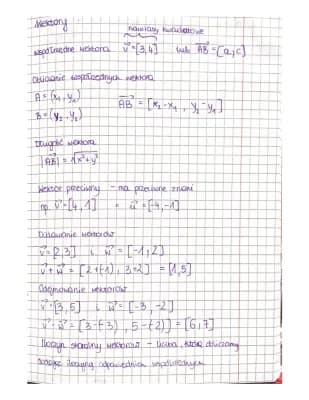 Wektory
nawiasy kwadratowe
współrzędne wektora v⃗ = [3,4] lub AB⃗ = [a,c]
Obliczanie współrzędnych wektora
A = (x₁, y₁)
AB⃗ = [x₂-x₁, y₂-y₁]
B = (x₂, y₂)
Długość wektora
|AB⃗| = √x²+y²
Wektor przeciwny - ma przeciwne znaki
np. v⃗ = [4, 1] = u⃗ = [-4, -1]
Dodawanie wektorów
v⃗ = [2,3] i w⃗ = [-1, 2]
v⃗ + w⃗ = [2+(-1), 3+2] = [1,5]
Odejmowanie wektorów
v⃗ = [3, 5] i w⃗ = [-3, -2]
v⃗ - w⃗ = [3-(-3), 5-(-2)] = [6,7]
Iloczyn skalarny wektorów - liczba, którą obliczamy
dodając iloczyny odpowiednich współrzędnych